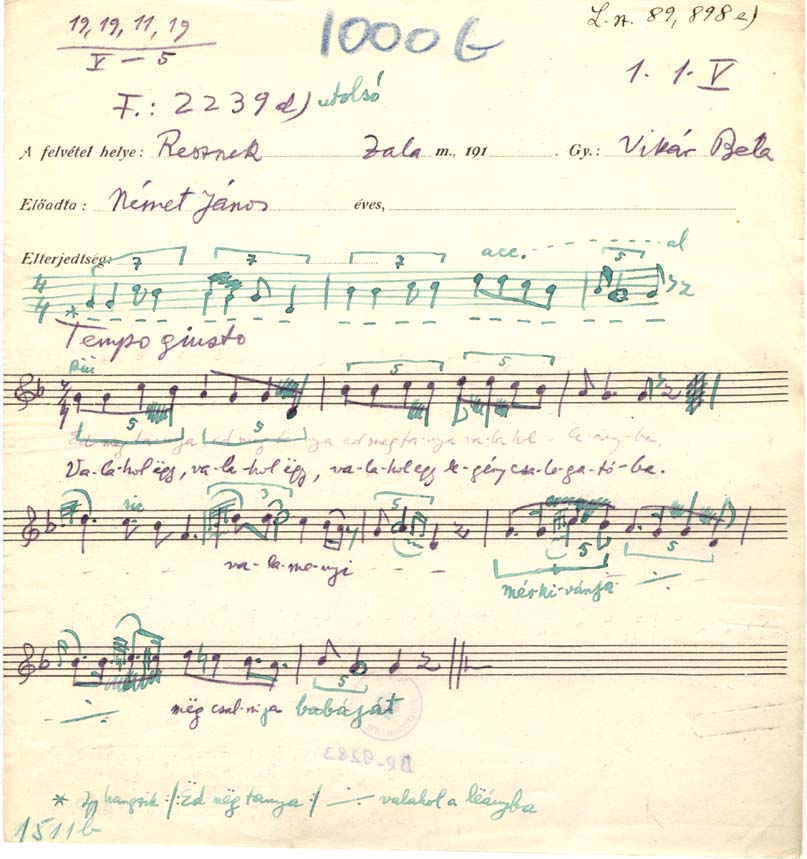 19, 19, 11, 19
V – 5
1000 b
L. sz. 89, 898 e)
1. 1. V
F.: 2239 d) utolsó
A felvétel helye: Resznek Zala m., 191 . Gy.: Vikár Béla
Előadta: Német János éves,
Elterjedtség:
7 7 7 acc. - - - - - - - al 5
4
4
*
Tempo giusto
5 5
5 5
Va-la-hol ëgy, va-la-hol ëgy, va-la-hol egy le-gény csa-lo-ga-tó-ba.
3 5
va-la-me-nyi
5 5
mér ki-vánja
5
még csal-nija babáját
BR-9283
* Igy hangzik :/: Ëd mëg tanya :/ valahol a lëányba
1511b